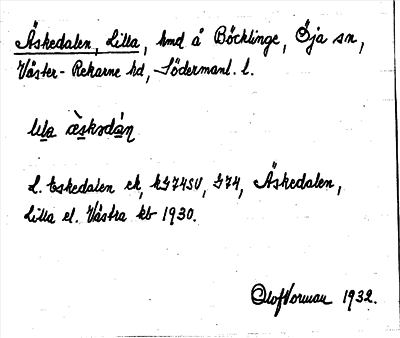 Äskedalen, Lilla, hmd å Böcklinge, Öja sn,
Väster-Rekarne hd, Södermanl. l.
lila æ̀skədán
L. Eskedalen ek, kG74SV, G74, Äskedalen,
Lilla el. Västra kb 1930.
Olof Norman 1932.